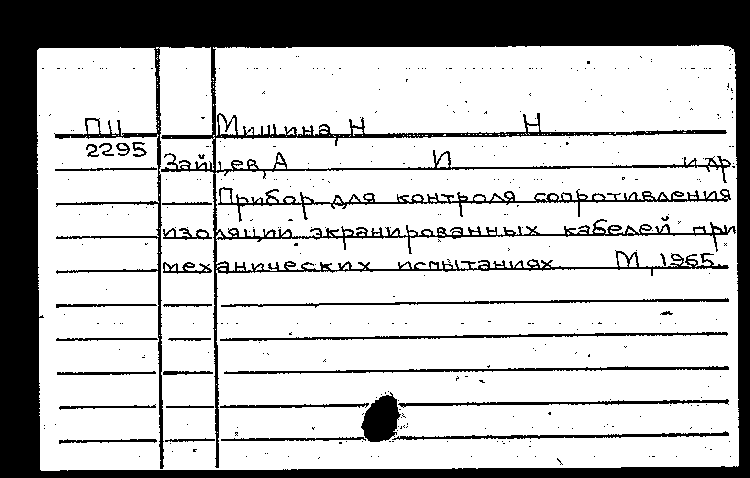 ПШ Мишина, Н Н
2295
Зайцев, А И и др.
Прибор для контроля сопротивления
изоляции экранированных кабелей при
механических испытаниях М, 1965.